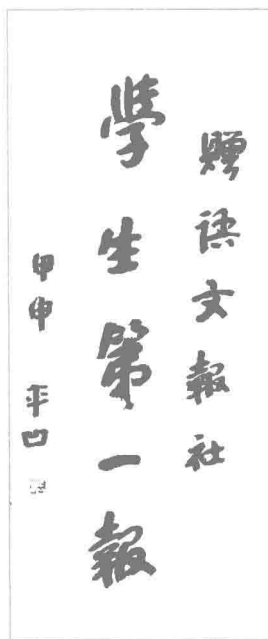 贈语文報社
學生第一報
甲申 平凹